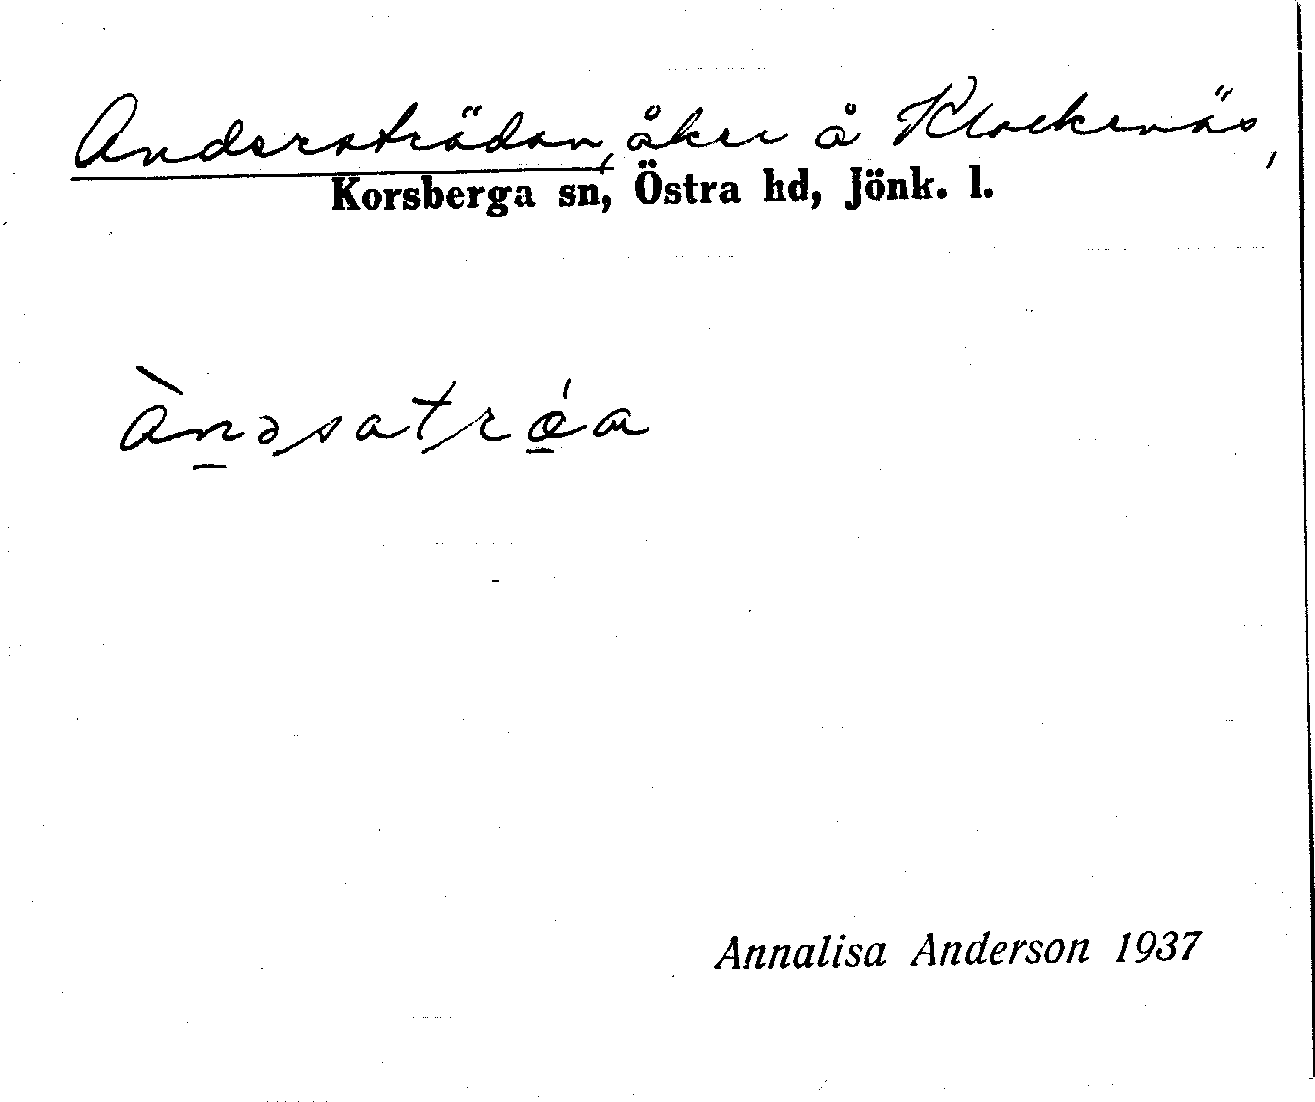 Anderströdan, åker å Klockenäs,
Korsberga sn, Östra hd, Jönk. l.
ànəsatrǽa
Annalisa Anderson 1937